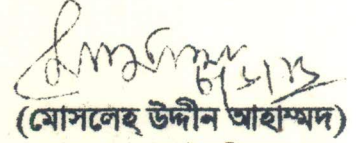 (মোসলেহ উদ্দীন আহাম্মদ)